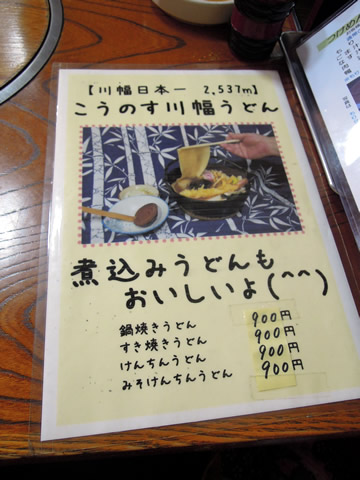 【川幅日本一 2,537m】
こうのす川幅うどん
煮込みうどんも
おいしいよ(^^)
鍋焼きうどん 900円
すき焼きうどん 900円
けんちんうどん 900円
みそけんちんうどん 900円